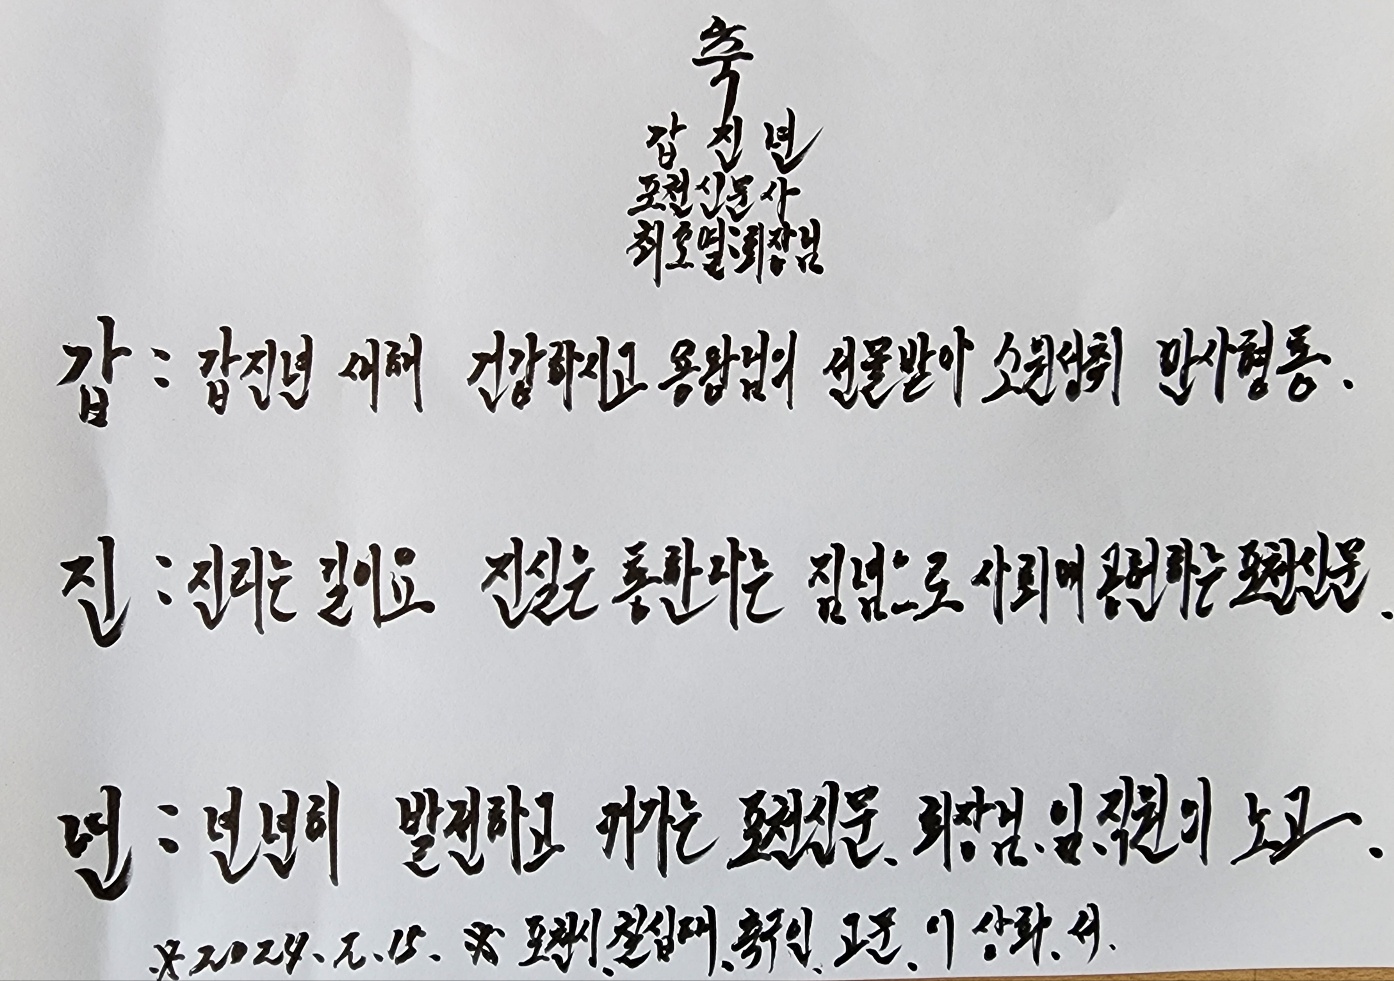 축
갑 진 년
포천신문사
최호열:회장님
갑 : 갑진년 새해 건강하시고 용왕님의 선물받아 소원성취 만사형통.
진 : 진리는 길이요 진실은 통한다는 집념으로 사회에 공헌하는 포천신문.
년 : 년년히 발전하고 커가는 포천신문. 회장님.임.직원의 노고.
※2024.2.15. ※ 포천시.칠십대.축구인. 고문. 이 상화. 서.